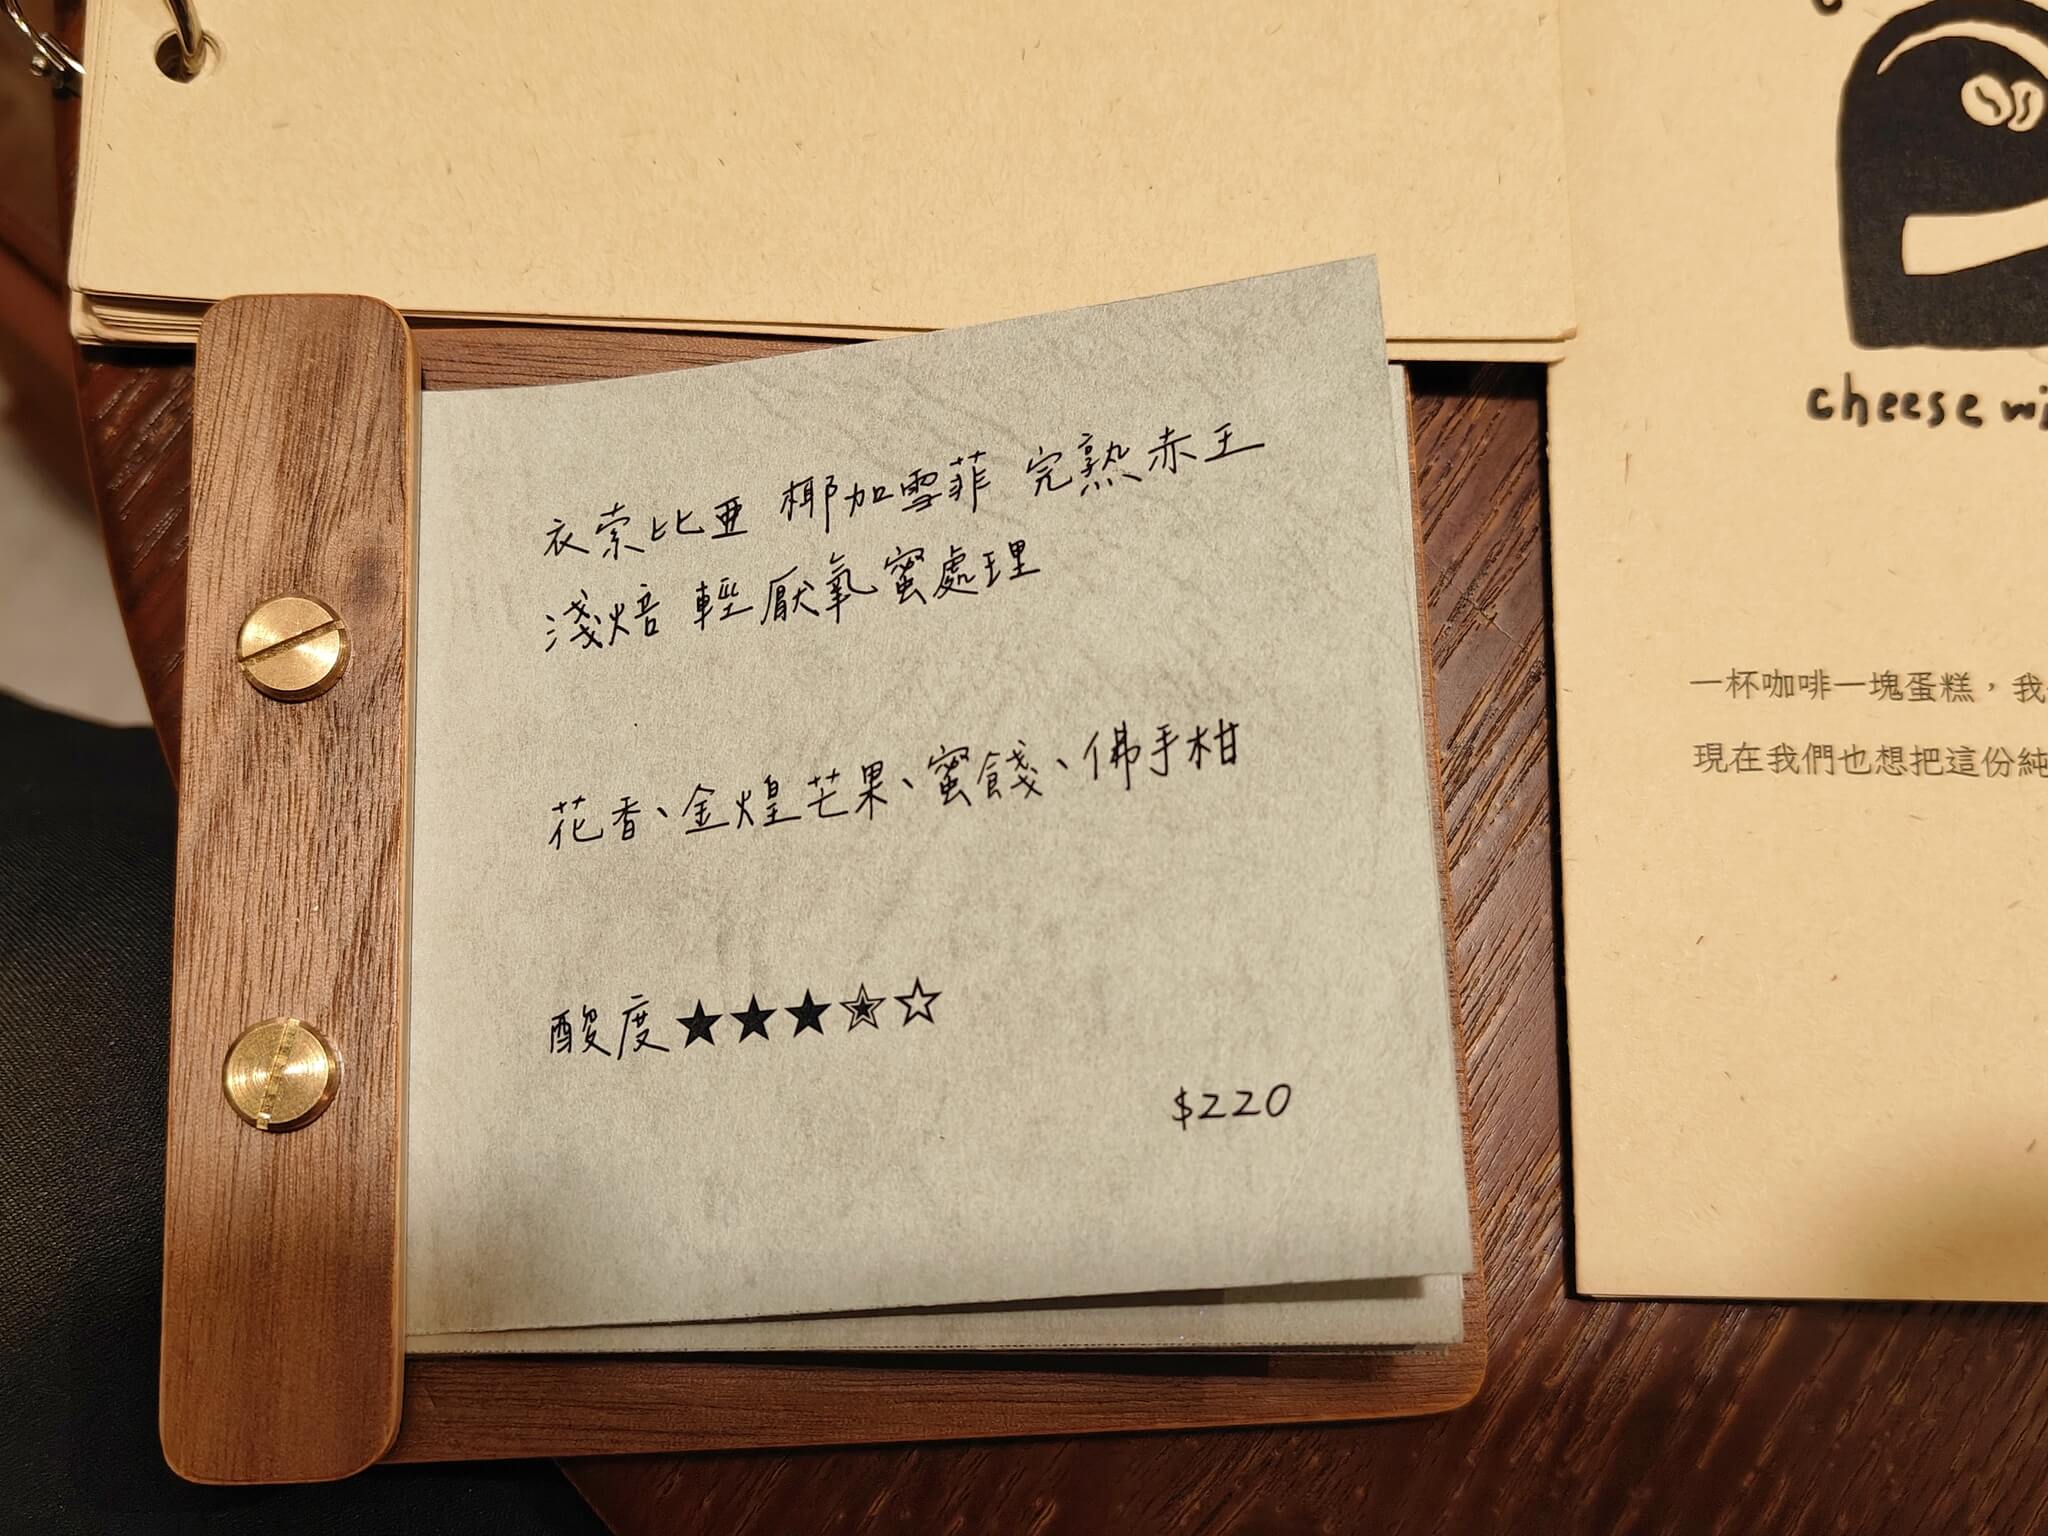 衣索比亞 椰加雪菲 完熟赤王
淺焙 輕厭氧蜜處理
花香、金煌芒果、蜜餞、佛手柑
酸度★★★✯☆
$220
cheese wi
一杯咖啡一塊蛋糕，我
現在我們也想把這份純